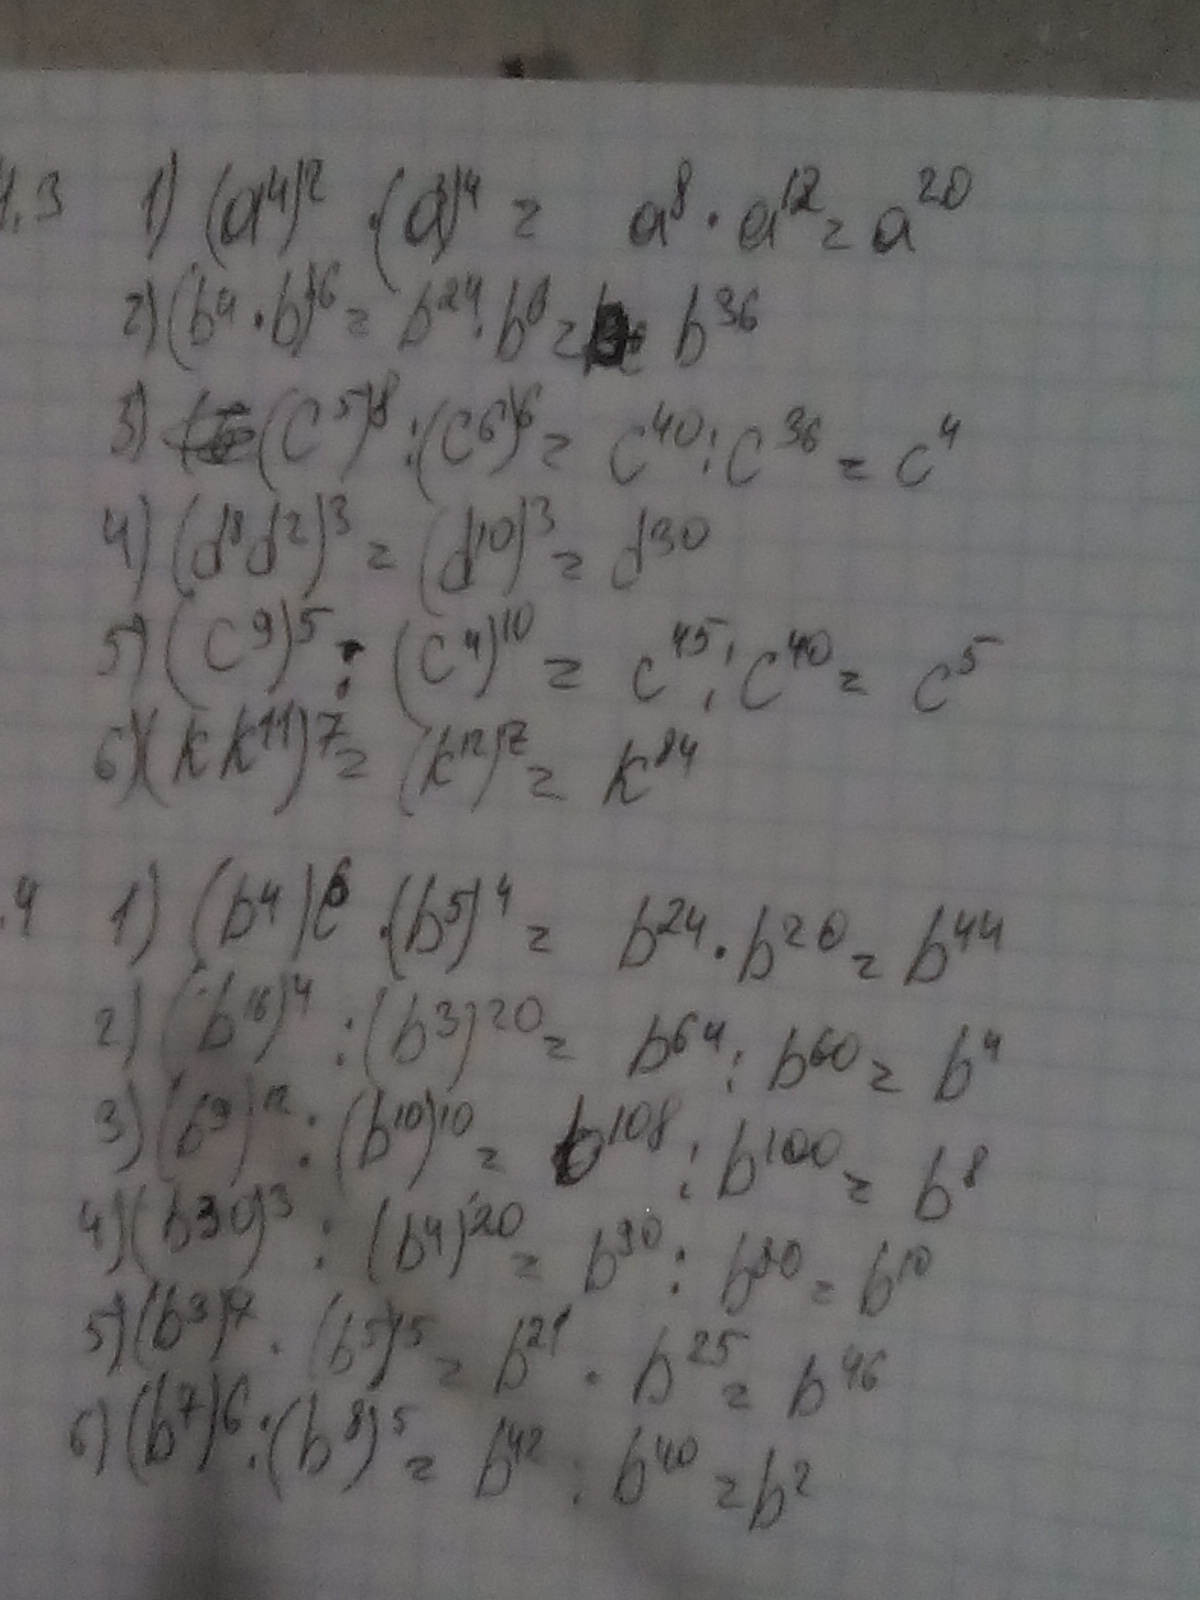 .3 1) (a⁴)² · (a³)⁴ = a⁸ · a¹² = a²⁰
2) (b⁴ · b)⁶ = b²⁴ · b = b³⁶
3) (c⁵)⁸ : (c⁶)⁶ = c⁴⁰ : c³⁶ = c⁴
4) (d⁸d²)³ = (d¹⁰)³ = d³⁰
5) (c⁹)⁵ : (c⁴)¹⁰ = c⁴⁵ : c⁴⁰ = c⁵
6) (k k¹¹)⁷ = (k¹²)⁷ = k⁸⁴
.4 1) (b⁴)⁶ · (b⁵)⁴ = b²⁴ · b²⁰ = b⁴⁴
2) (b¹⁶)⁴ : (b³)²⁰ = b⁶⁴ : b⁶⁰ = b⁴
3) (b⁹)¹² : (b¹⁰)¹⁰ = b¹⁰⁸ : b¹⁰⁰ = b⁸
4) (b³⁰)³ : (b⁴)²⁰ = b⁹⁰ : b⁸⁰ = b¹⁰
5) (b³)⁷ · (b⁵)⁵ = b²¹ · b²⁵ = b⁴⁶
6) (b⁷)⁶ : (b⁸)⁵ = b⁴² : b⁴⁰ = b²